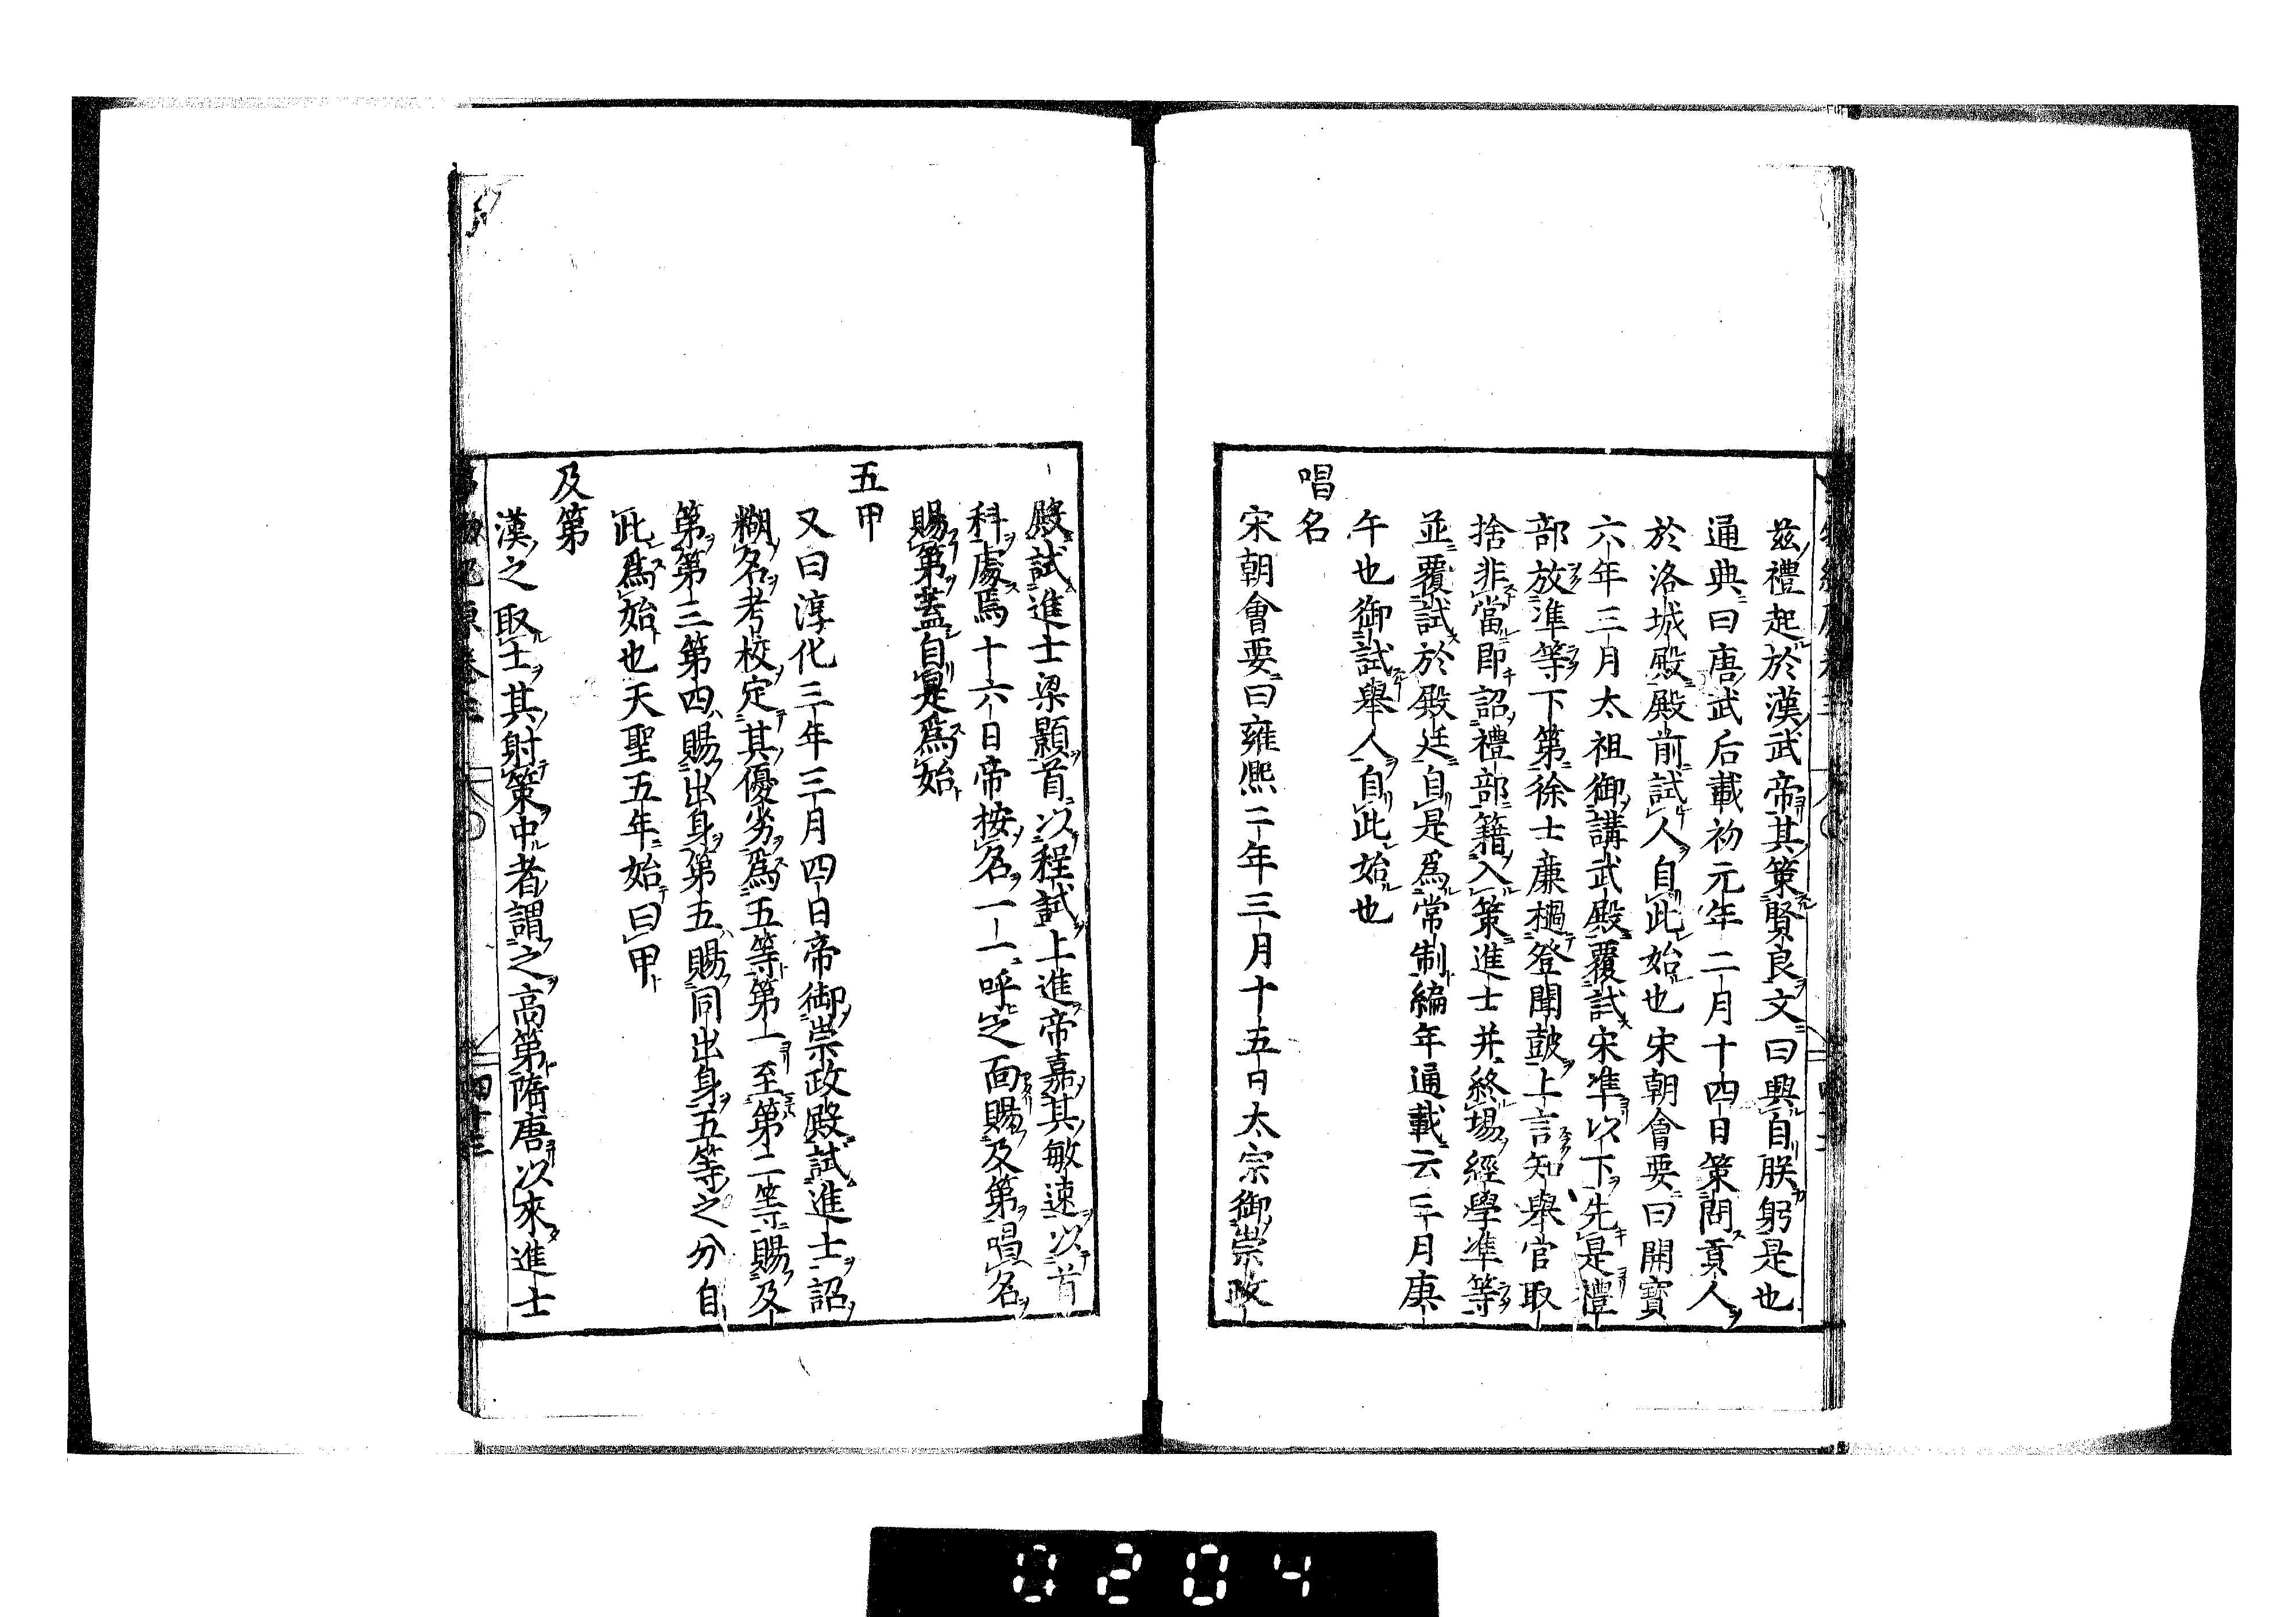 茲禮起於漢武帝其策賢良文曰興自朕躬是也
通典曰唐武后載初元年二月十四日策問貢人
於洛城殿殿前試人自此始也宋朝會要曰開寶
六年三月太祖御講武殿覆試宋準以下先是禮
部放準等下第徐士廉檛登聞鼓上言知舉官取
捨非當即詔禮部籍入策進士并終場經學準等
並覆試於殿廷自是爲常制編年通載云三月庚
午也御試舉人自此始也
唱名
宋朝會要曰雍熙二年三月十五日太宗御崇政
殿試進士梁顥首以程試上進帝嘉其敏速以首
科處焉十六日帝按名一一呼之面賜及第唱名
賜第蓋自是爲始
五甲
又曰淳化三年三月四日帝御崇政殿試進士詔
糊名考校定其優劣爲五等第一至第二等賜及
第第三第四賜出身第五賜同出身五等之分自
此爲始也天聖五年始曰甲
及第
漢之取士其射策中者謂之高第隋唐以來進士
四十三
0204